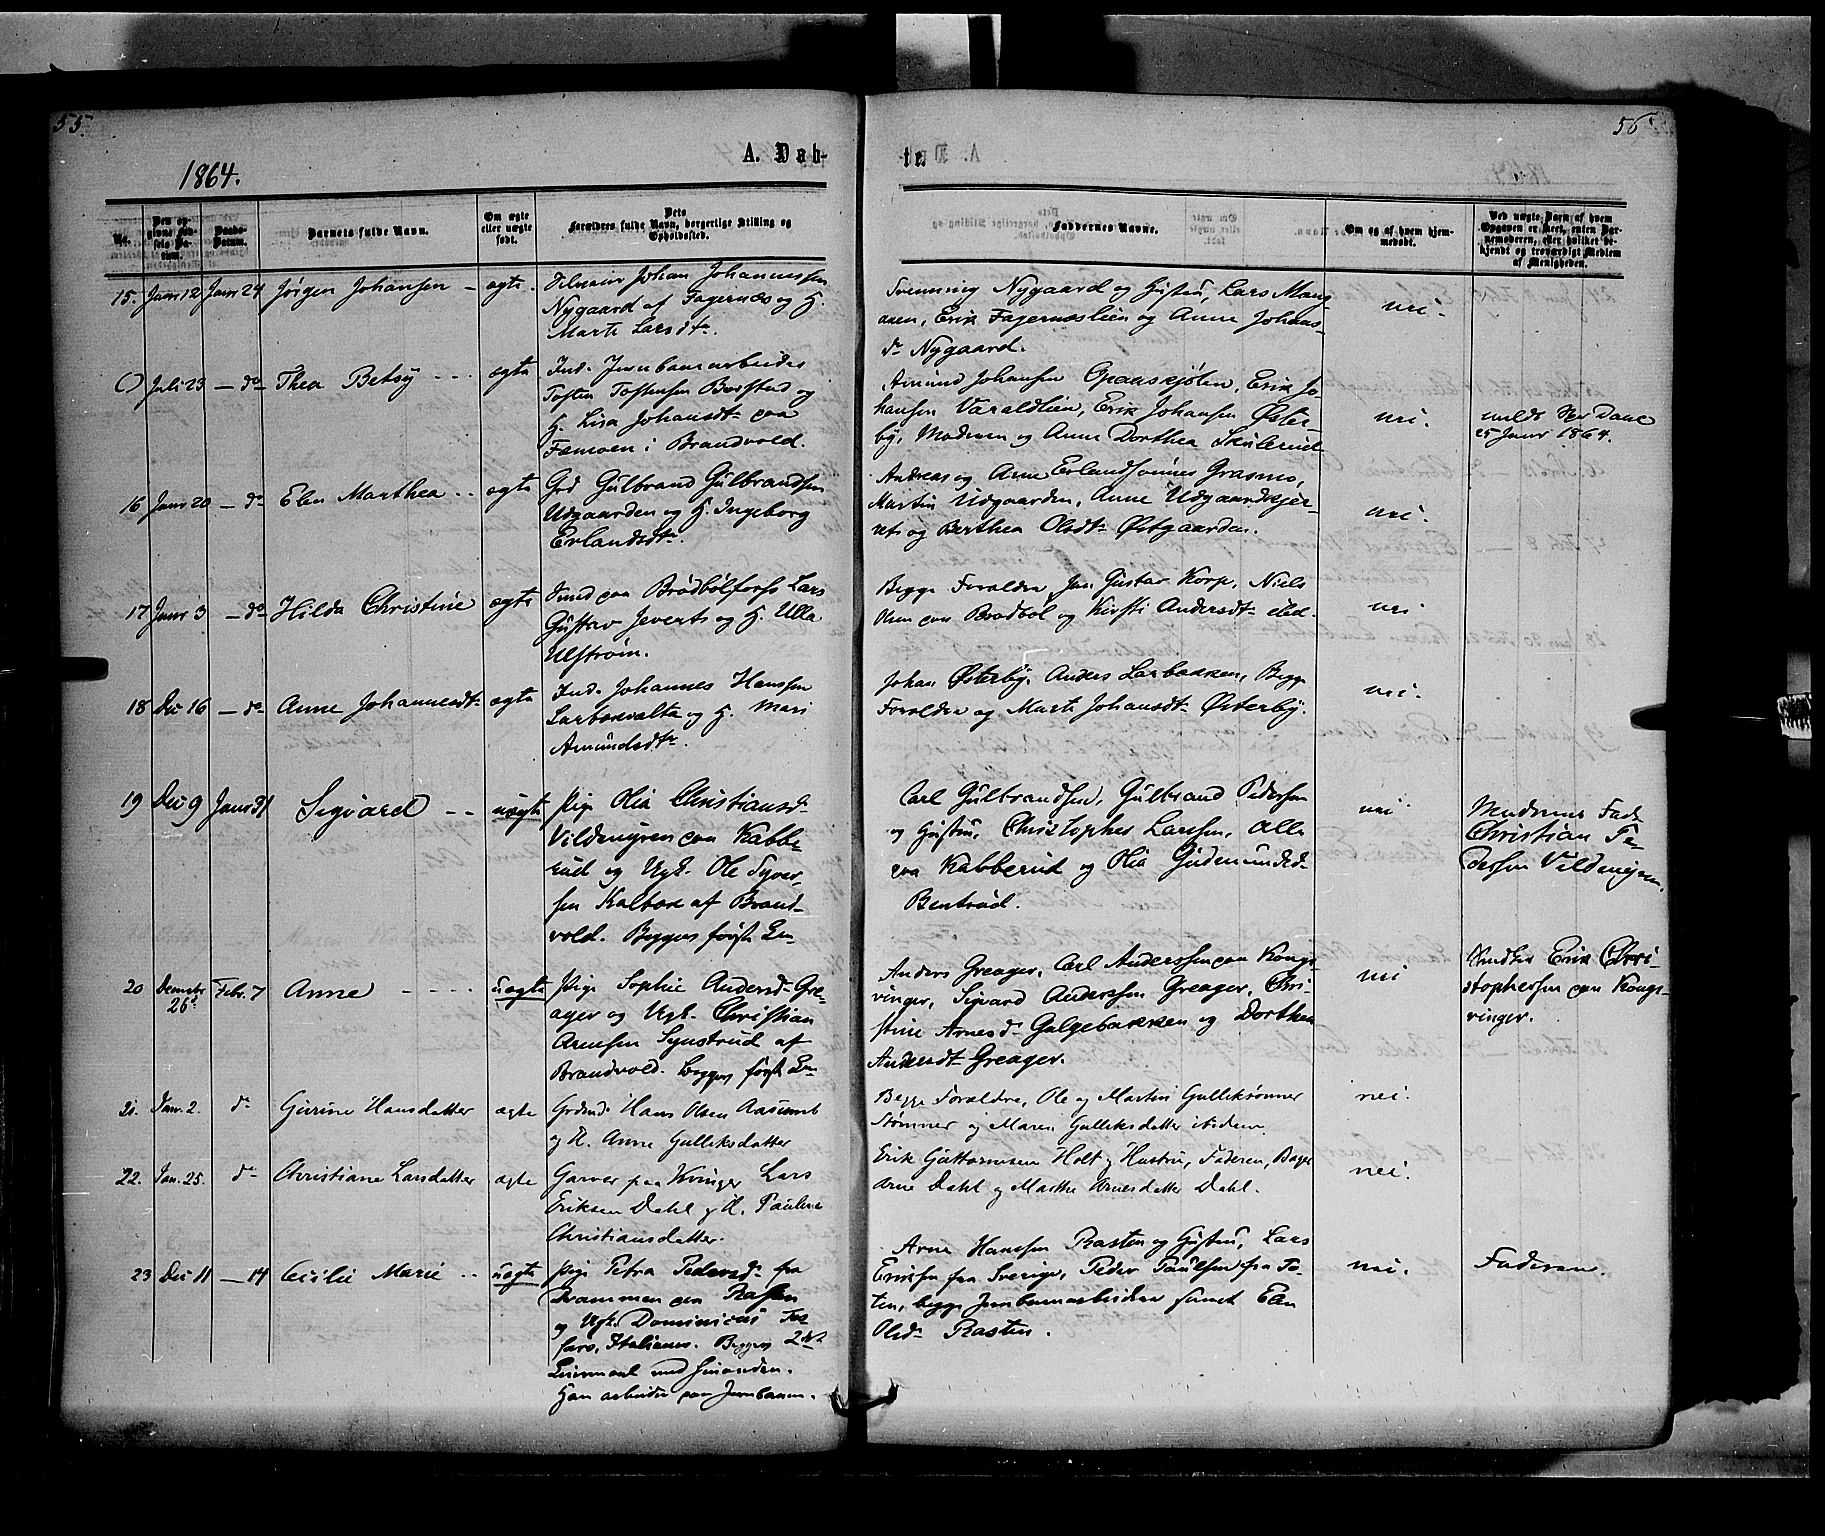 55.
56
1864.
A. Døb-
te.
No.
Den opgivne Fødsels Datum.
Daabs-Datum.
Barnets fulde Navn.
Om ægte eller uægte født.
Dets Forældres fulde Navn, borgerlige Stilling og Opholdssted.
Faddernes Navne.
Om og af hvem hjemmedøbt.
Ved uægte Barn af hvem Opgaven er skeet, enten Barnemoderen, eller hvilket bekjendt og troværdigt Medlem af Menigheden.
15. Janr 12 Janr 24 Jørgen Johansen - ægte. Johan Johannessen
Nygaard af Fagernæs og H.
Marte Larsdtr.
Svenning Nygaard og Hustru, Lars Mang
ansen, Erik Fagernæslien og Anne Johans
dr Nygaard.
nei.
Juli 23 - do Thea Betsy - - - ægte Ind. Jernbanearbeider
Tosten Tostensen Borstad og
H. Lisa Johansdtr paa
Fæmoen i Brandvold.
Amund Johansen Opaaskjølen, Erik Jo-
hansen Varaldlien, Erik Johansen Øster-
by, Moderen og Anne Dorthea Skulerud
nei.
meldt Dane
25 Janr 1864.
16 Janr 20 - do Elen Marthea - - ægte Grd Gulbrand Gulbrandsen
Udgaarden og H. Ingeborg
Erlandsdtr.
Andreas og Arne Erlandsønnes Grasmo,
Martin Udgaarden, Anne Udgaardskjer-
ret og Berthea Olsdtr Østgaarden.
nei.
17 Janr 3 - do Hilda Christine ægte Smed paa Brødbølfors Lars
Gustav Jeverts og H. Ulla
Ulstrøm.
Begge Forældre, Jan Gustav Korp, Niels
Olsen paa Brødbøl og Kirsti Andersdtr ibid.
nei
18 Dec 16 - do Anne Johannesdtr ægte Ind. Johannes Hansen
Larbakvalta og H. Mari
Amundsdtr.
Johan Østerby, Anders Larbakken, Begge
Forældre og Marte Johansdtr Østerby.
nei.
19 Dec 9 Janr 31 Sigvard - - uægte Pige Olia Christiansd-
Vildmyren paa Kabbe-
rud og Ugk. Ole Syver-
sen Kalbak af Brand-
vold. Begges første Lm
Carl Gulbrandsen, Gulbrand Pedersen
og Hustru, Christopher Larssen, alle
paa Kabberud og Olia Gudmundsd-
Bentrud.
nei
Moderens Fader
Christian Pe-
dersen Vildmyren.
20 Decmbr 26 Febr. 7 Anne - - - - uægte Pige Sophie Andersd- Gre-
ager og Ugk. Christian
Arnesen Synstrud af
Brandvold. Begges første Lm
Anders Greager, Carl Anderssen paa Kongs-
vinger, Sigvard Anderssen Greager, Chri-
stine Arnesd- Galgebakken og Dorthea
Andersdtr Greager.
nei
Erik Chri-
stophersen paa Kongs-
vinger.
21. Jan. 2. do Gurine Hansdatter ægte Grdmd. Hans Olsen Aasumb
og H. Anne Gulliksdatter
Begge Forældre, Ole og Martin Gulliksønner
Stømner og Maren Gulliksdatter ibidem.
nei.
22. Jan. 25. do Christiane Larsdatter ægte Garver paa Kvinger Lars
Eriksen Dahl og H. Pauline
Christiansdatter.
Erik Guttormsen Holt og Hustru, Faderen, Bager
Arne Dahl og Marthe Arnesdatter Dahl.
nei.
23 Dec 11 - 14 Cecilie Marie - - uægte Pige Petra Pedersd- fra
Drammen paa Rasten
og Ugk. Dominicus
Italiener. Begges 2det
Leiermaal med hinanden.
Han arbeider paa Jernbanen.
Arne Hanssen Rasten og Hustru, Lars
Erikssen fra Sverige, Peder Paulsen fra To-
ten, begge Jernbanearbeidere samt Elen
Olsd- Rasten.
nei.
Faderen.